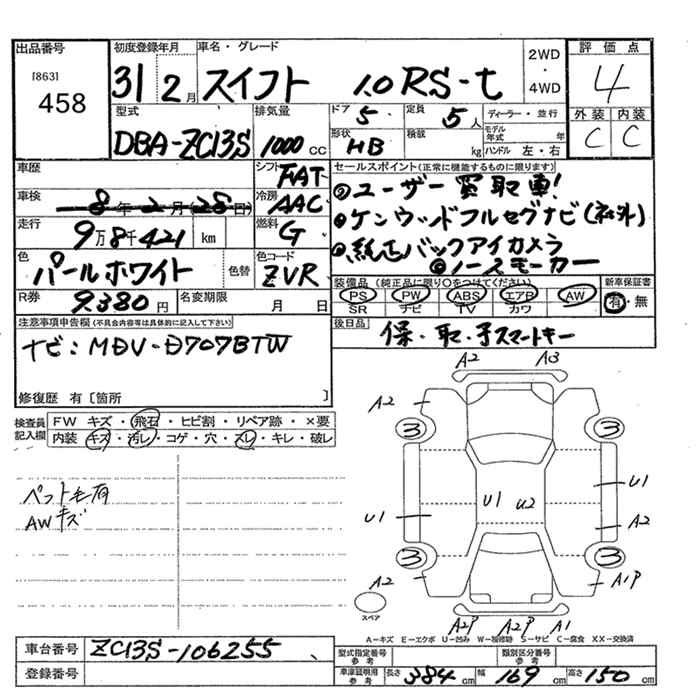 出品番号
[863]
458
初度登録年月
31年2月
車名・グレード
スイフト 1.0 RS-t
2WD・4WD
評価点
4
外装 内装
C C
型式
DBA-ZC13S
排気量
1000 CC
ドア
5
定員
5人
形状
HB
積載
kg
ディーラー・並行
モデル年式 年
ハンドル 左・右
車歴
シフト
FAT
車検
8年2月(28日)
冷房
AAC
走行
9万8千421 km
燃料
G
色
パールホワイト
色替
色コード
ZVR
R券
9.380円
名変期限
月 日
セールスポイント(正常に機能するものに限ります)
ユーザー買取車!
ケンウッドフルセグナビ(社外)
純正バックアイカメラ
ノースモーカー
装備品(純正品に限り○をつけてください)
PS PW ABS エアB AW
SR ナビ TV カワ
新車保証書
有・無
後日品
保・取・予スマートキー
注意事項申告欄(不具合内容等は具体的に記入して下さい)
ナビ:MDV-D707BTW
修復歴 有〔箇所 〕
検査員記入欄
FW キズ・飛石・ヒビ割・リペア跡・×要
内装 キズ・汚レ・コゲ・穴・スレ・キレ・破レ
ペット毛有
AWキズ
A2 A3
A2
3 3
U1
U1 U2
U1 A2
3 3
A2 A1P
スペア
A2P A2P A1
A-キズ E-エクボ U-凹み W-補修跡 S-サビ C-腐食 XX-交換済
車台番号
ZC13S-106255
登録番号
型式指定番号 参考
類別区分番号 参考
車庫証明用 参考
長さ 384 cm 幅 169 cm 高さ 150 cm